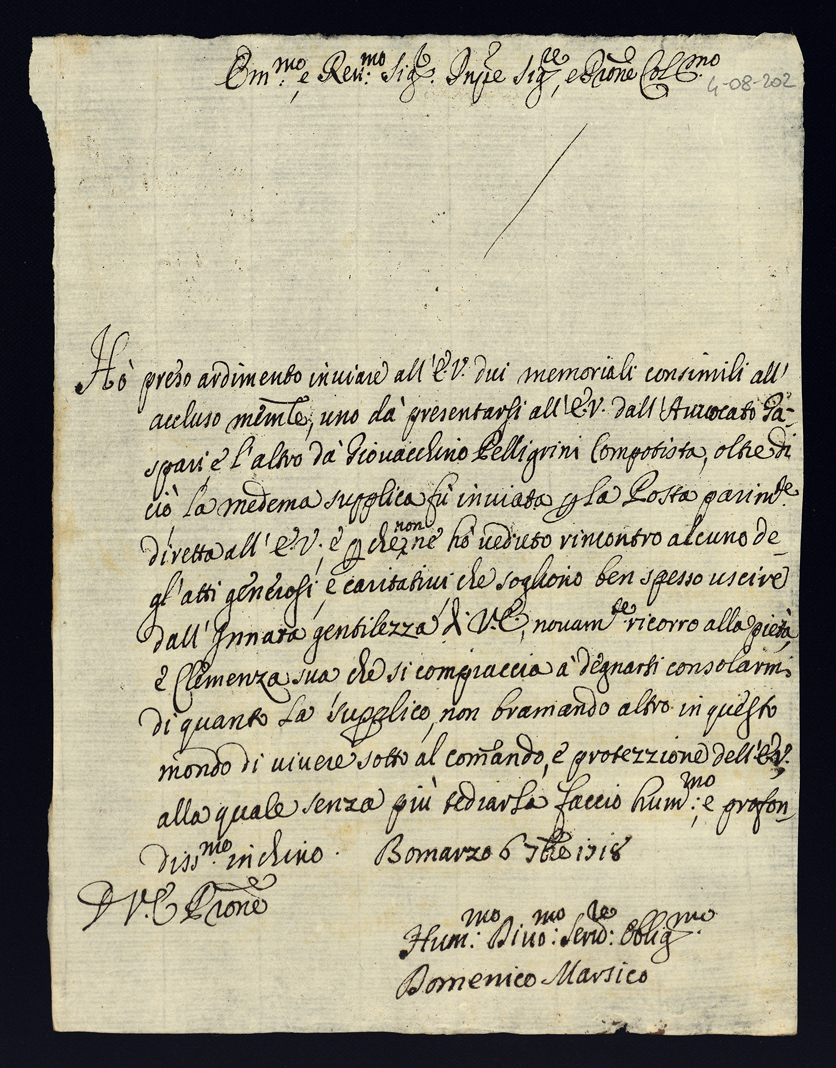 Em.mo, e Rev.mo Sig.re Sig.re, e Prone Col.mo
4-08-202
Hò preso ardimento inviare all'E.V. dui memoriali consimili all'
accluso memle, uno dà presentarsi all'E.V. dall'Avvocato Ga-
spari, è l'altro dà Giovacchino Pelligrini Compotista, oltre di
ciò la medema supplica fù inviata p la Posta parimte
diretta all'E.V., è p che non ne hò veduto rincontro alcuno de-
gl'atti generosi, è caritativi che sogliono ben spesso uscire
dall'Innata gentilezza di V.E., novamte ricorro alla pietà,
è Clemenza sua che si compiaccia à degnarsi consolarmi
di quanto La supplico, non bramando altro in questo
mondo di vivere sotto al comando, è protezzione dell'E.V.
alla quale senza più tediarla faccio hum.mo, e profon-
diss.mo inchino. Bomarzo 6 7bre 1718
D V.E. Prone
Hum.mo Divo.mo Serv.re Oblig.mo
Domenico Marsico